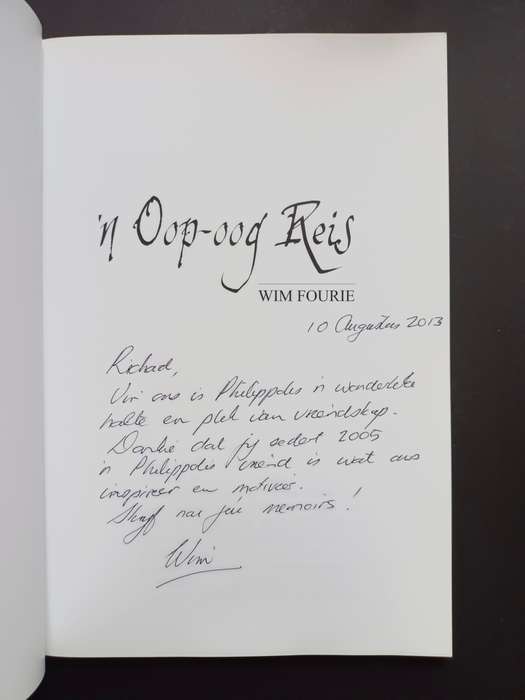 'n Oop-oog Reis
WIM FOURIE
10 Augustus 2013
Richard,
Vir ons is Philippolis 'n wonderlike
halte en plek van vriendskap.
Dankie dat jy sedert 2005
'n Philippolis vriend is wat ons
inspireer en motiveer.
Skryf nou jou memoirs!
Wim